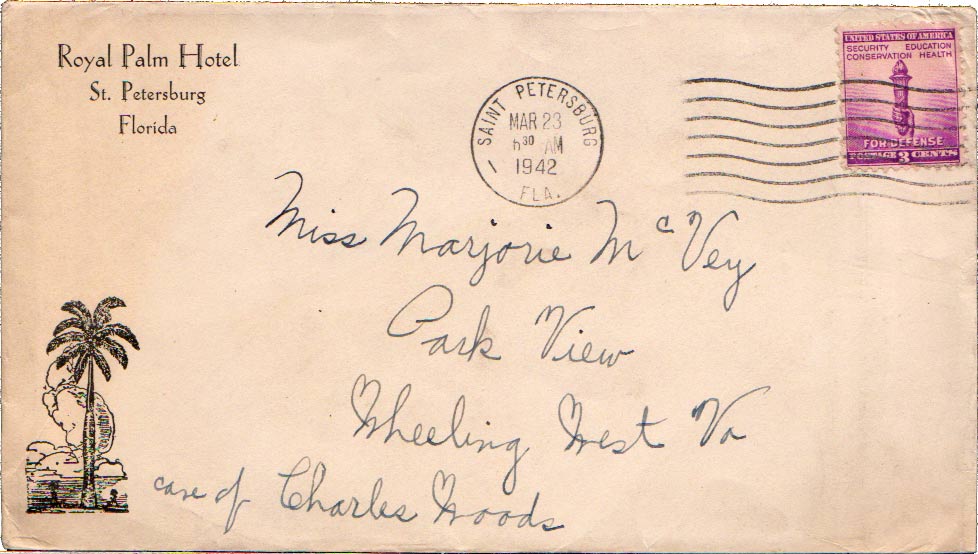 Royal Palm Hotel
St. Petersburg
Florida
SAINT PETERSBURG
MAR 23
6 30 AM
1942
FLA.
UNITED STATES OF AMERICA
SECURITY EDUCATION
CONSERVATION HEALTH
FOR DEFENSE
POSTAGE 3 CENTS
Miss Marjorie McVey
Park View
Wheeling West Va
care of Charles Woods